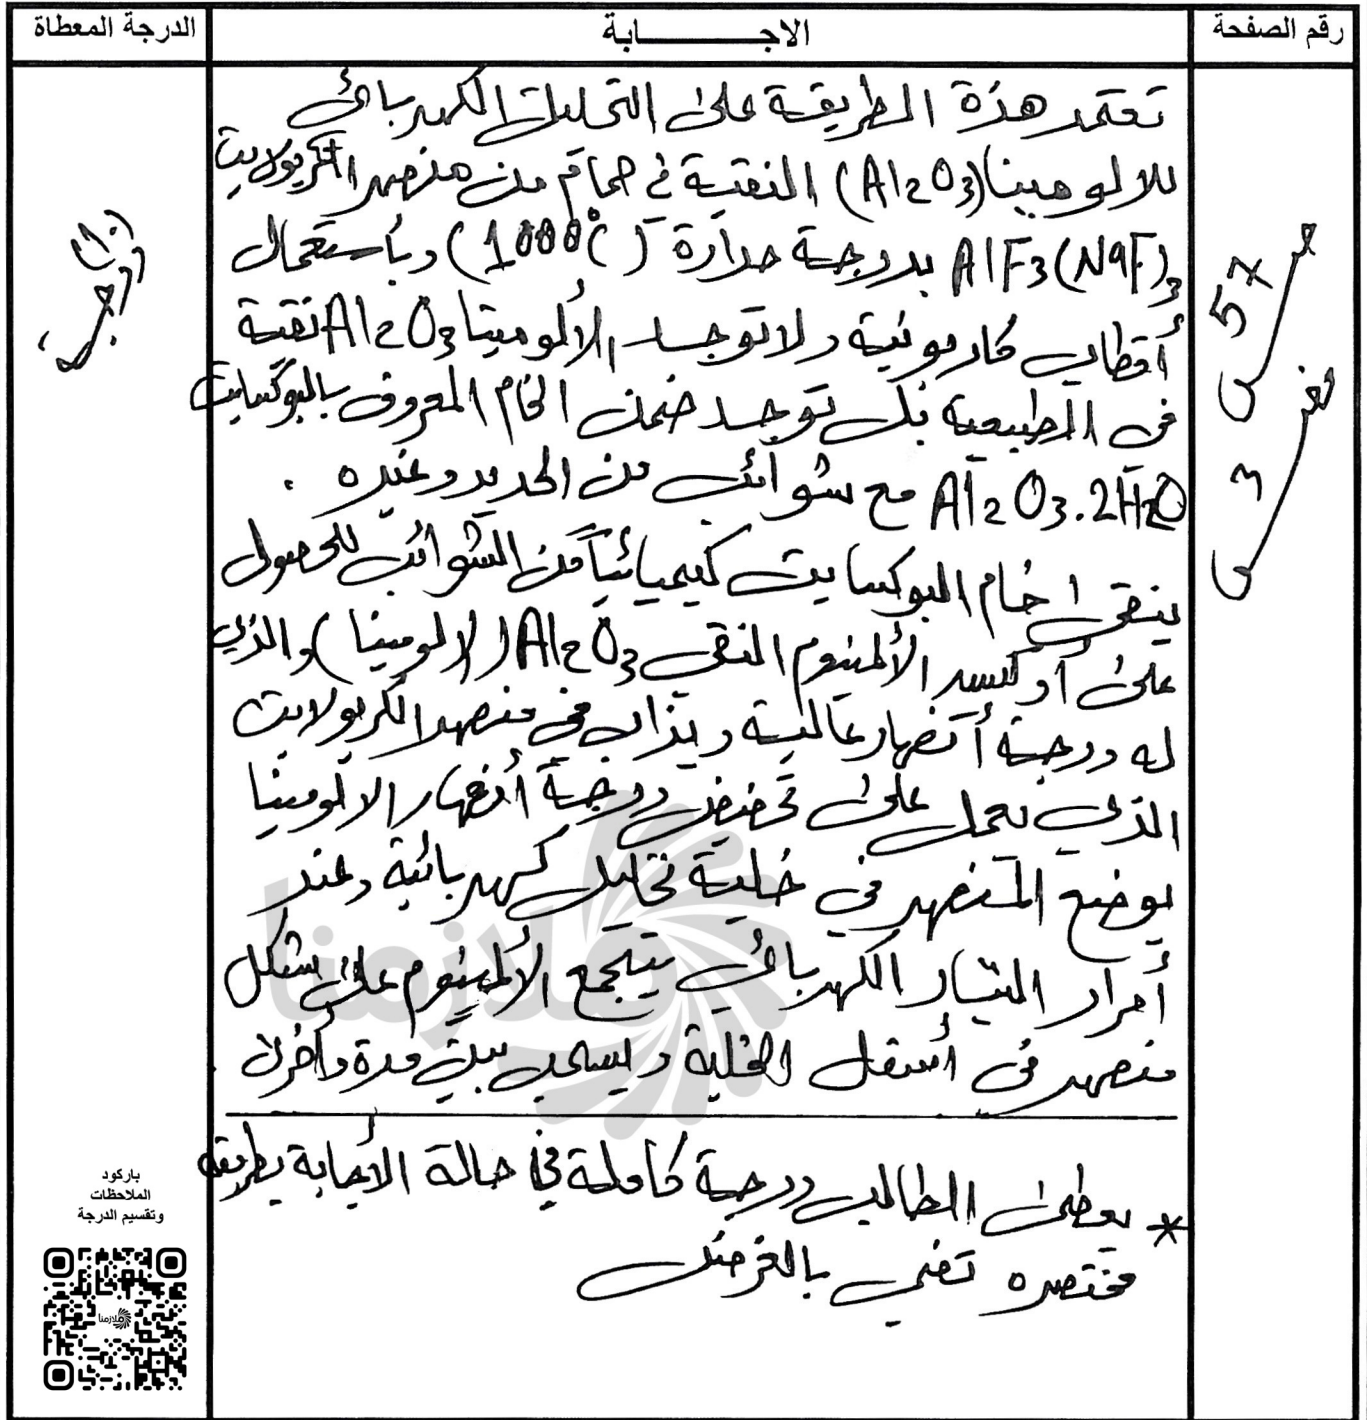 رقم الصفحة
الاجـــــــابة
الدرجة المعطاة
تعتمد هذة الطريقة على التحليل الكهربائي
للالومينا (Al2O3) النقية في حمام من منصهر الكريولايت
AlF3(NaF)3 بدرجة حرارة (1000C°) وبأستعمال
أقطاب كاربونية ولا توجد الألومينا Al2O3 نقية
في الطبيعية بل توجد ضمن الخام المعروف بالبوكسايت
Al2O3.2H2O مع شوائب من الحديد وغيره .
ينقى خام البوكسايت كيميائياً من الشوائب للحصول
على أوكسيد الألمنيوم النقي Al2O3 (الالومينا) والذي
له درجة أنصهار عالية ويذاب في منصهر الكريولايت
الذي يعمل على تخفيض درجة أنصهار الالومينا
يوضع المنصهر في خلية تحليل كهربائية وعند
أمرار التيار الكهربائي يتجمع الألمنيوم على شكل
منصهر في أسفل الخلية ويسحب بين مدة وأخرى .
* يعطى الطالب درجة كاملة في حالة الأجابة بطريقه
مختصره تفي بالغرض
ص 57
ص 3
(10) درجة
باركود
الملاحظات
وتقسيم الدرجة
ملازمنا
ملازمنا